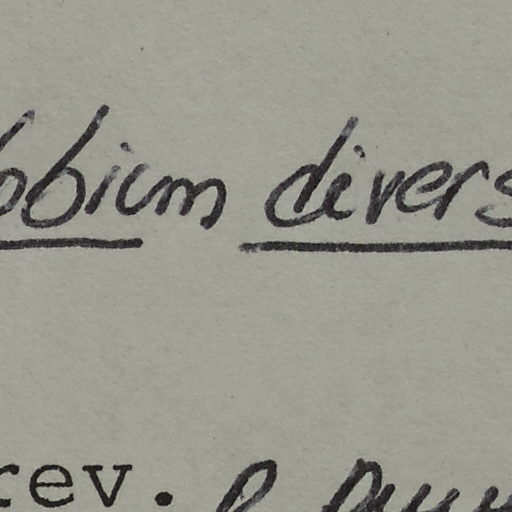 obium divers
rev.